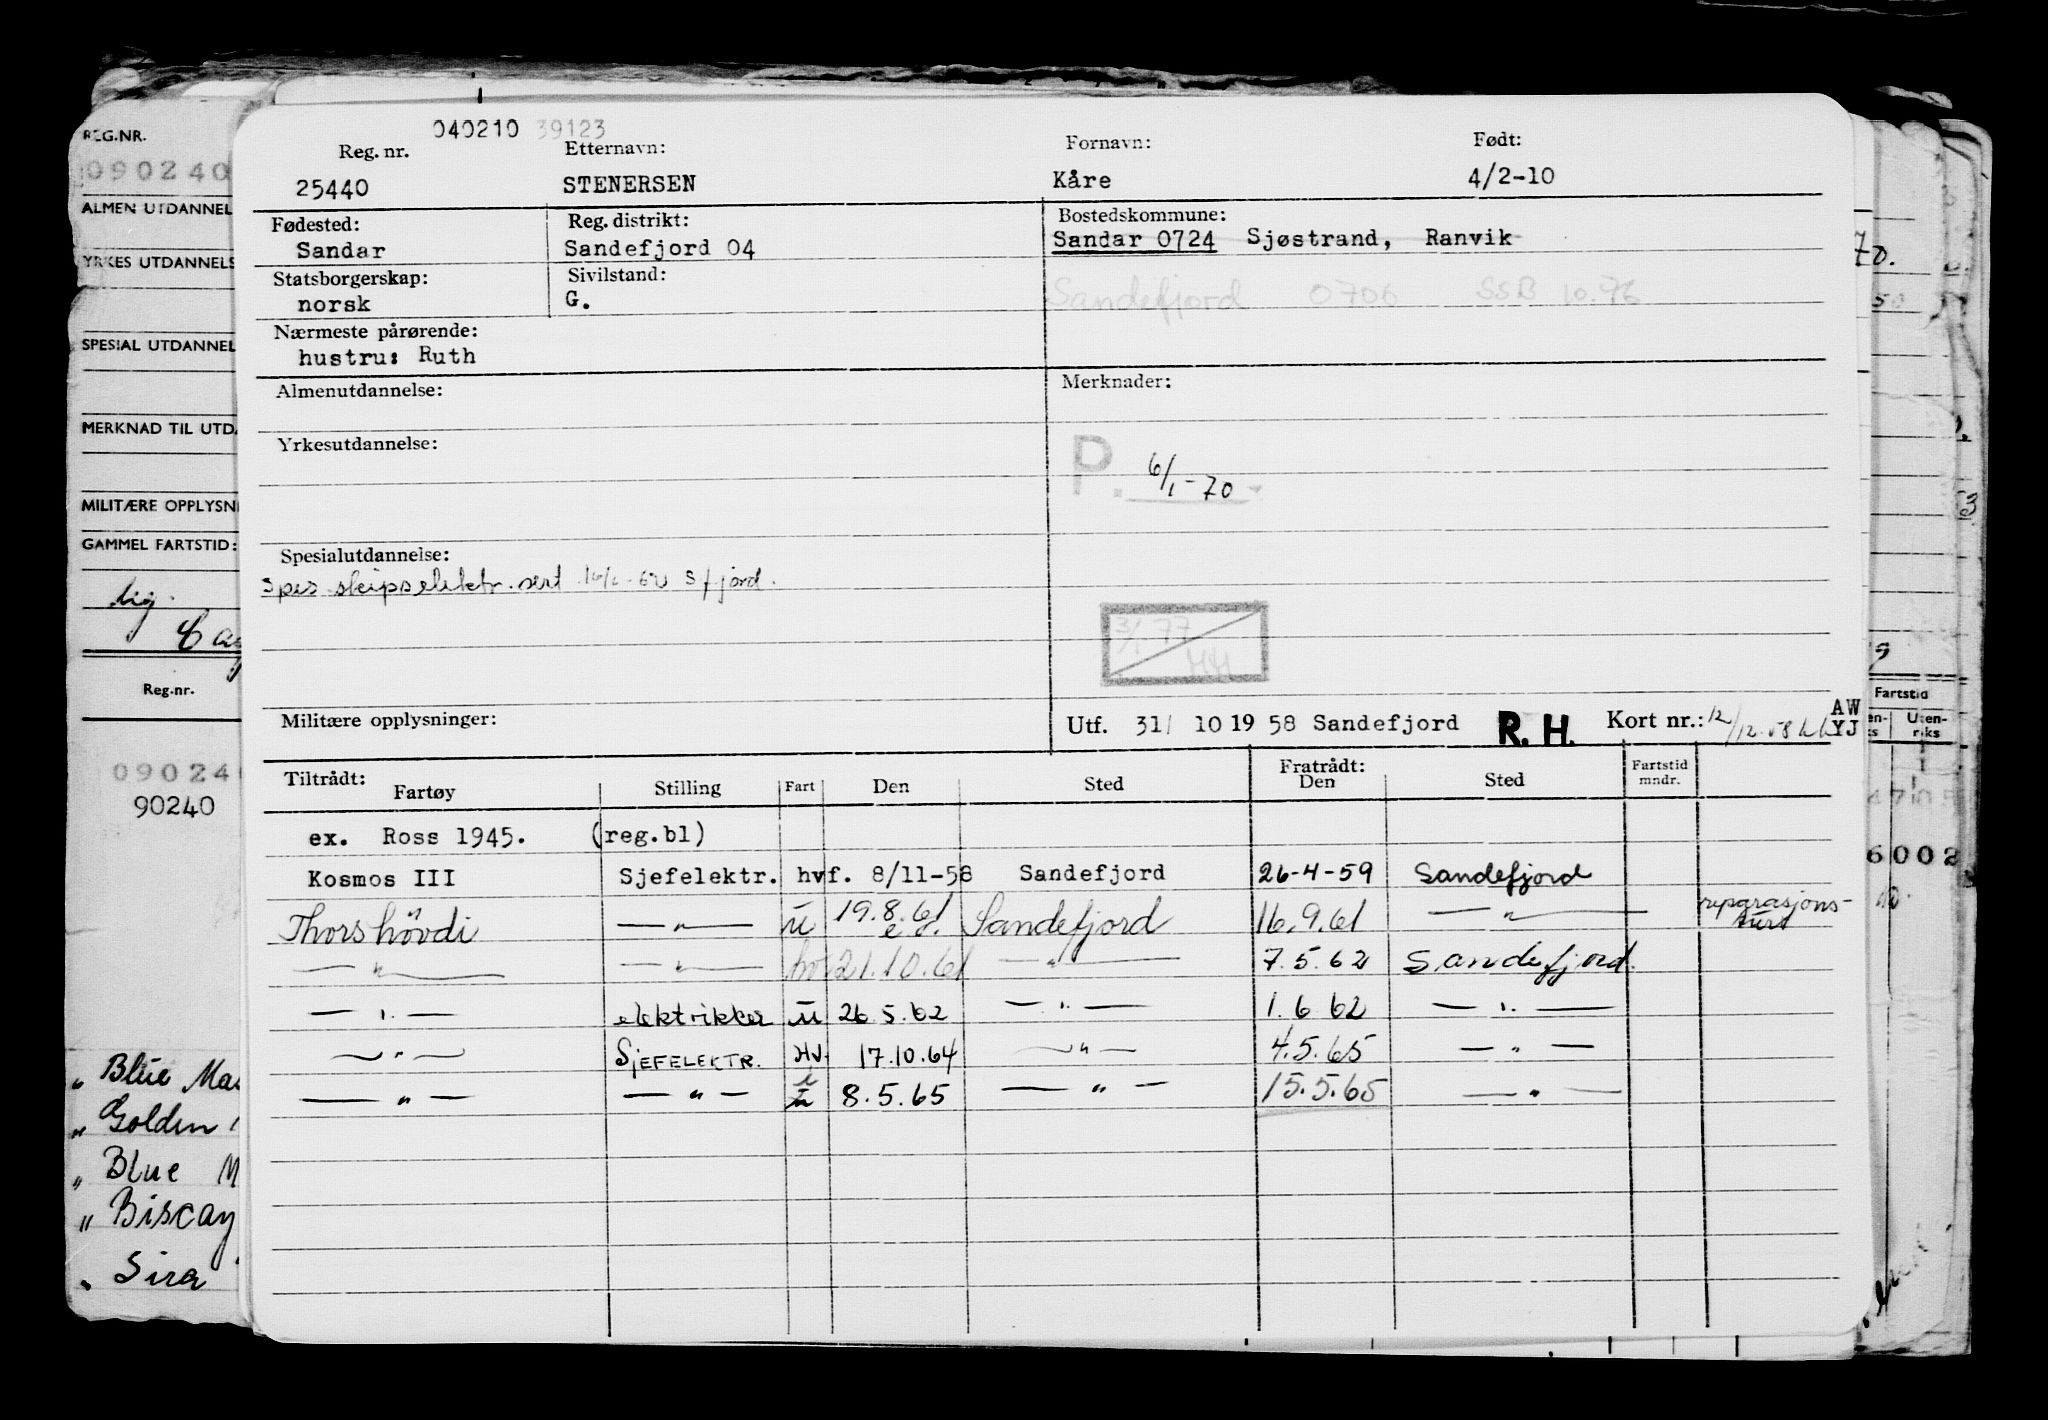 040210 39123
Reg. nr. Etternavn: Fornavn: Født:
25440 STENERSEN Kåre 4/2-10
Fødested: Reg. distrikt: Bostedskommune:
Sandar Sandefjord 04 Sandar 0724 Sjøstrand, Ranvik
Statsborgerskap: Sivilstand:
norsk G. Sandefjord 0706 SSB 10.76
Nærmeste pårørende:
hustru: Ruth
Almenutdannelse: Merknader:
Yrkesutdannelse:
P. 6/1-70
Spesialutdannelse:
spes skipselektr. sert S fjord.
3/1 77
HH
Militære opplysninger: Utf. 31/ 10 19 58 Sandefjord R. H. Kort nr.: 12/12.58 AW
YJ
Tiltrådt: Fratrådt: Fartstid
Fartøy Stilling Fart Den Sted Den Sted mndr.
ex. Ross 1945. (reg.bl)
Kosmos III Sjefelektr. hvf. 8/11-58 Sandefjord 26-4-59 Sandefjord
Thorshövdi — " — u 19.8.61 Sandefjord 16.9.61 — " — reparasjons-
— " — — " — hv 21.10.61 — " — 7.5.62 Sandefjord.
— " — elektrikker u 26.5.62 — " — 1.6.62 — " —
— " — SJEFELEKTR. HV. 17.10.64 — " — 4.5.65 — " —
— " — — " — i 8.5.65 — " — 15.5.65 — " —
REG.NR.
090240
ALMEN UTDANNEL
YRKES UTDANNELS
SPESIAL UTDANNEL
MERKNAD TIL UTD
MILITÆRE OPPLYSN
GAMMEL FARTSTID:
Reg.nr.
09024
90240
" Blue Ma
" Golden
" Blue M
" Biscay
" Sira
70.
50
Fartstid
en- Uten-
ks riks
6002